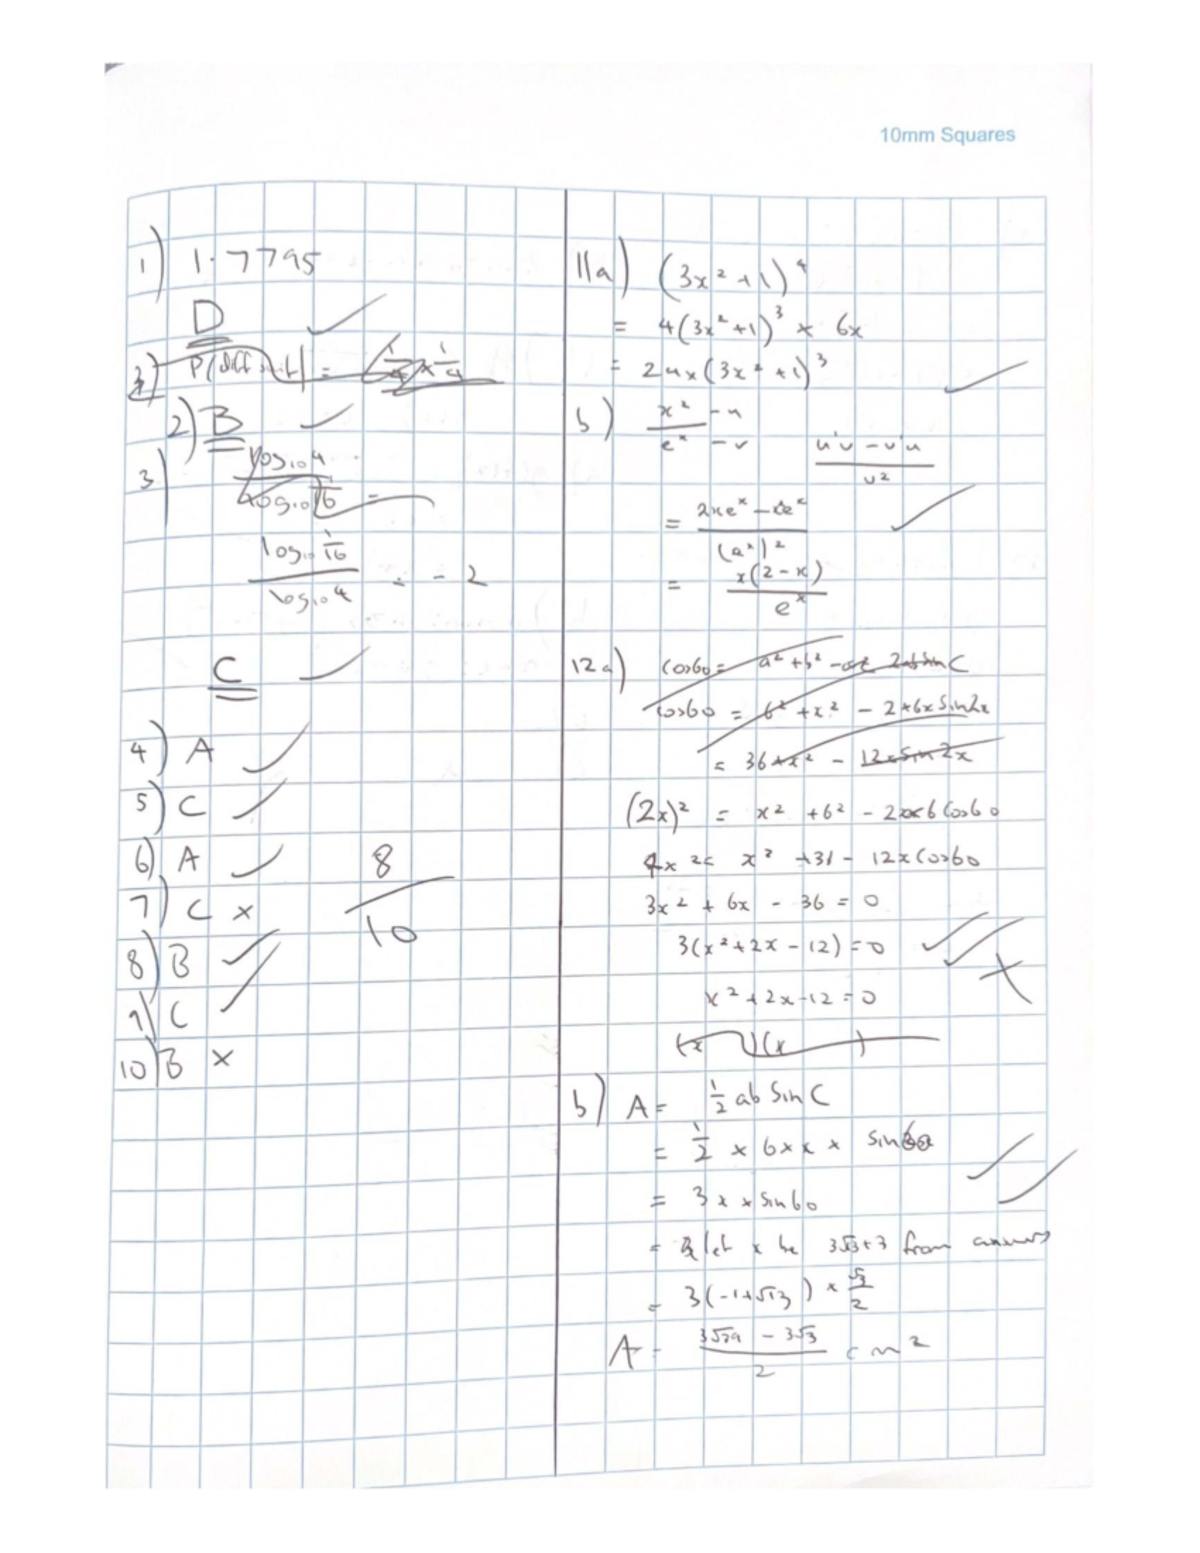 10mm Squares
1) 1.7795
D
3) P(diff suit) = 1/4 × 1/4
2) B
3) log₁₀4
log₁₀ 1/16 =
log₁₀ 1/16
log₁₀4 = -2
C
4) A
5) C
6) A
8
7) C ×
10
8) B
9) C
10) B ×
11a) (3x² + 1)⁴
= 4(3x² + 1)³ × 6x
= 24x(3x² + 1)³
b) x² - u
eˣ - v
u'v - v'u
v²
= 2xeˣ - x²eˣ
(eˣ)²
= x(2 - x)
eˣ
12a) cos60 = a² + b² - 2absinC
cos60 = 6² + x² - 2×6xSin2x
= 36 + x² - 12xSin2x
(2x)² = x² + 6² - 2xx6Cos60
4x² = x² + 36 - 12xCos60
3x² + 6x - 36 = 0
3(x² + 2x - 12) = 0
x² + 2x - 12 = 0
(x )(x )
b) A = ½ ab Sin C
= ½ × 6 × x × Sin60
= 3x × Sin60
= let x be 3√3+3 from answers
= 3(-1+√13) × √3/2
A = 3√39 - 3√3
2 cm²